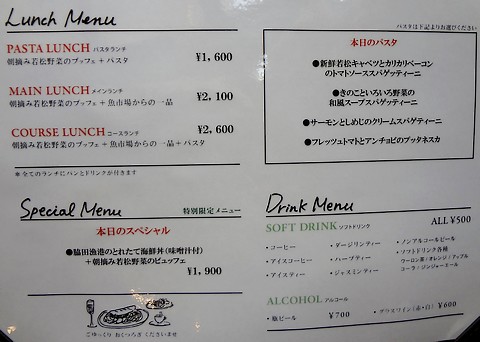 Lunch Menu
PASTA LUNCH パスタランチ
朝摘み若松野菜のブッフェ + パスタ
¥1,600
MAIN LUNCH メインランチ
朝摘み若松野菜のブッフェ + 魚市場からの一品
¥2,100
COURSE LUNCH コースランチ
朝摘み若松野菜のブッフェ + 魚市場からの一品 + パスタ
¥2,600
※全てのランチにパンとドリンクが付きます
パスタは下記よりお選びください
本日のパスタ
●新鮮若松キャベツとカリカリベーコン
のトマトソーススパゲッティーニ
●きのこといろいろ野菜の
和風スープスパゲッティーニ
●サーモンとしめじのクリームスパゲッティーニ
●フレッシュトマトとアンチョビのプッタネスカ
Special Menu
特別限定メニュー
本日のスペシャル
●脇田漁港のとれたて海鮮丼(味噌汁付)
+朝摘み若松野菜のビュッフェ
¥1,900
ごゆっくり おくつろぎ くださいませ
Drink Menu
SOFT DRINK ソフトドリンク
ALL ¥500
・コーヒー
・アイスコーヒー
・アイスティー
・ダージリンティー
・ハーブティー
・ジャスミンティー
・ノンアルコールビール
・ソフトドリンク各種
ウーロン茶/オレンジ/アップル
コーラ/ジンジャーエール
ALCOHOL アルコール
・瓶ビール ¥700
・グラスワイン(赤・白) ¥600